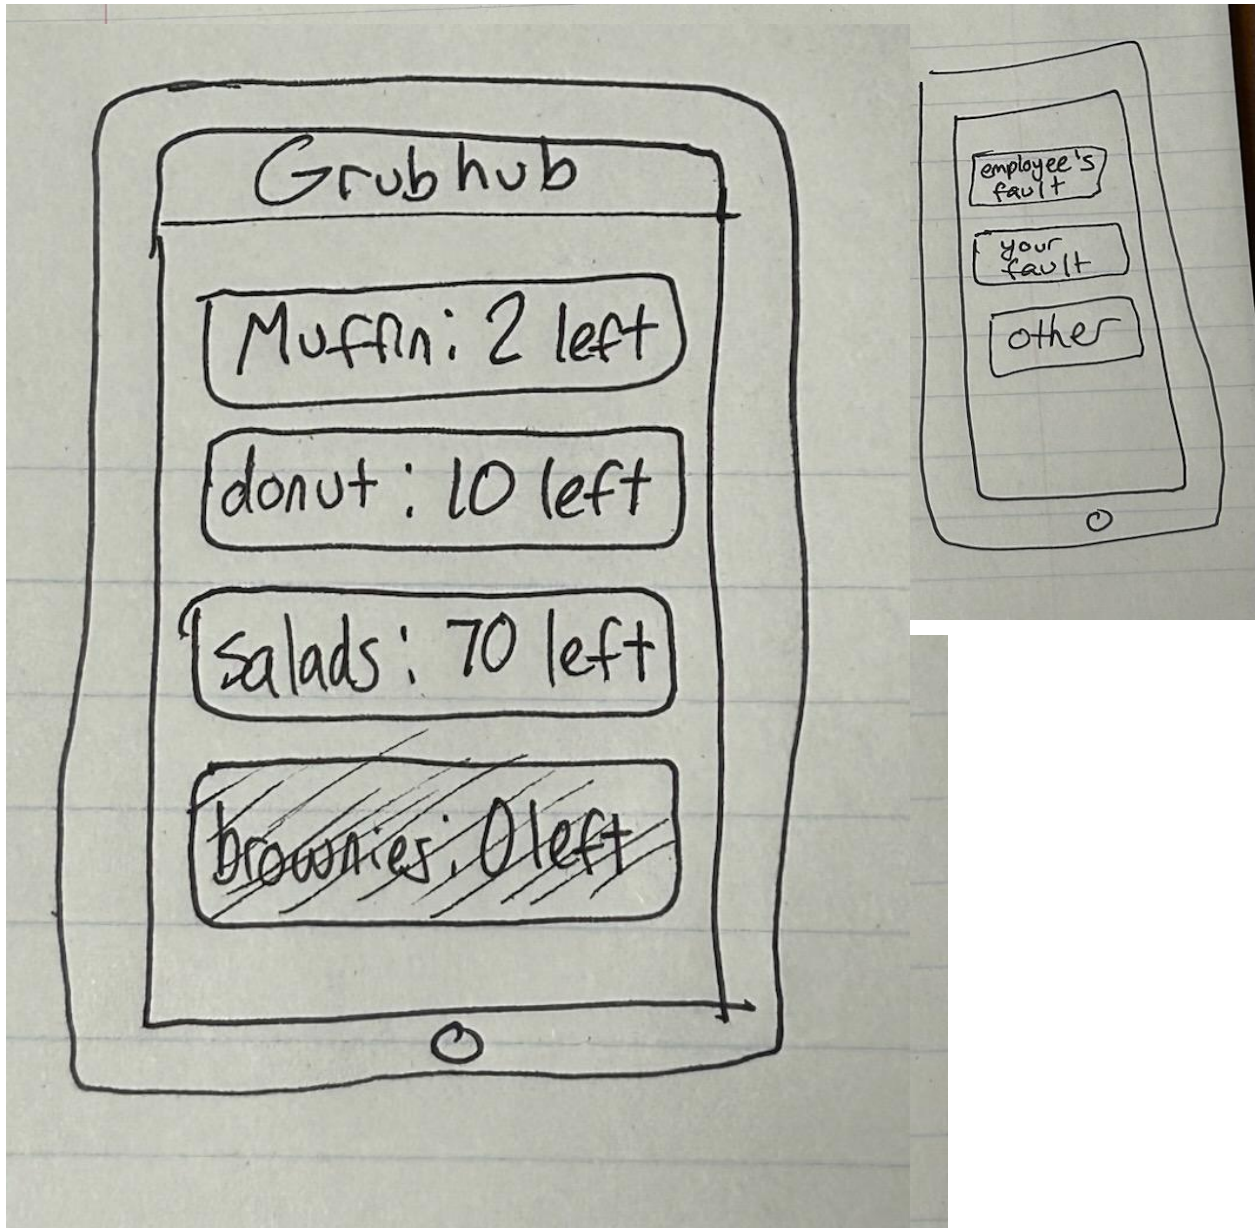 Grubhub
Muffin: 2 left
donut: 10 left
salads: 70 left
brownies: 0 left
employee's
fault
your
fault
other